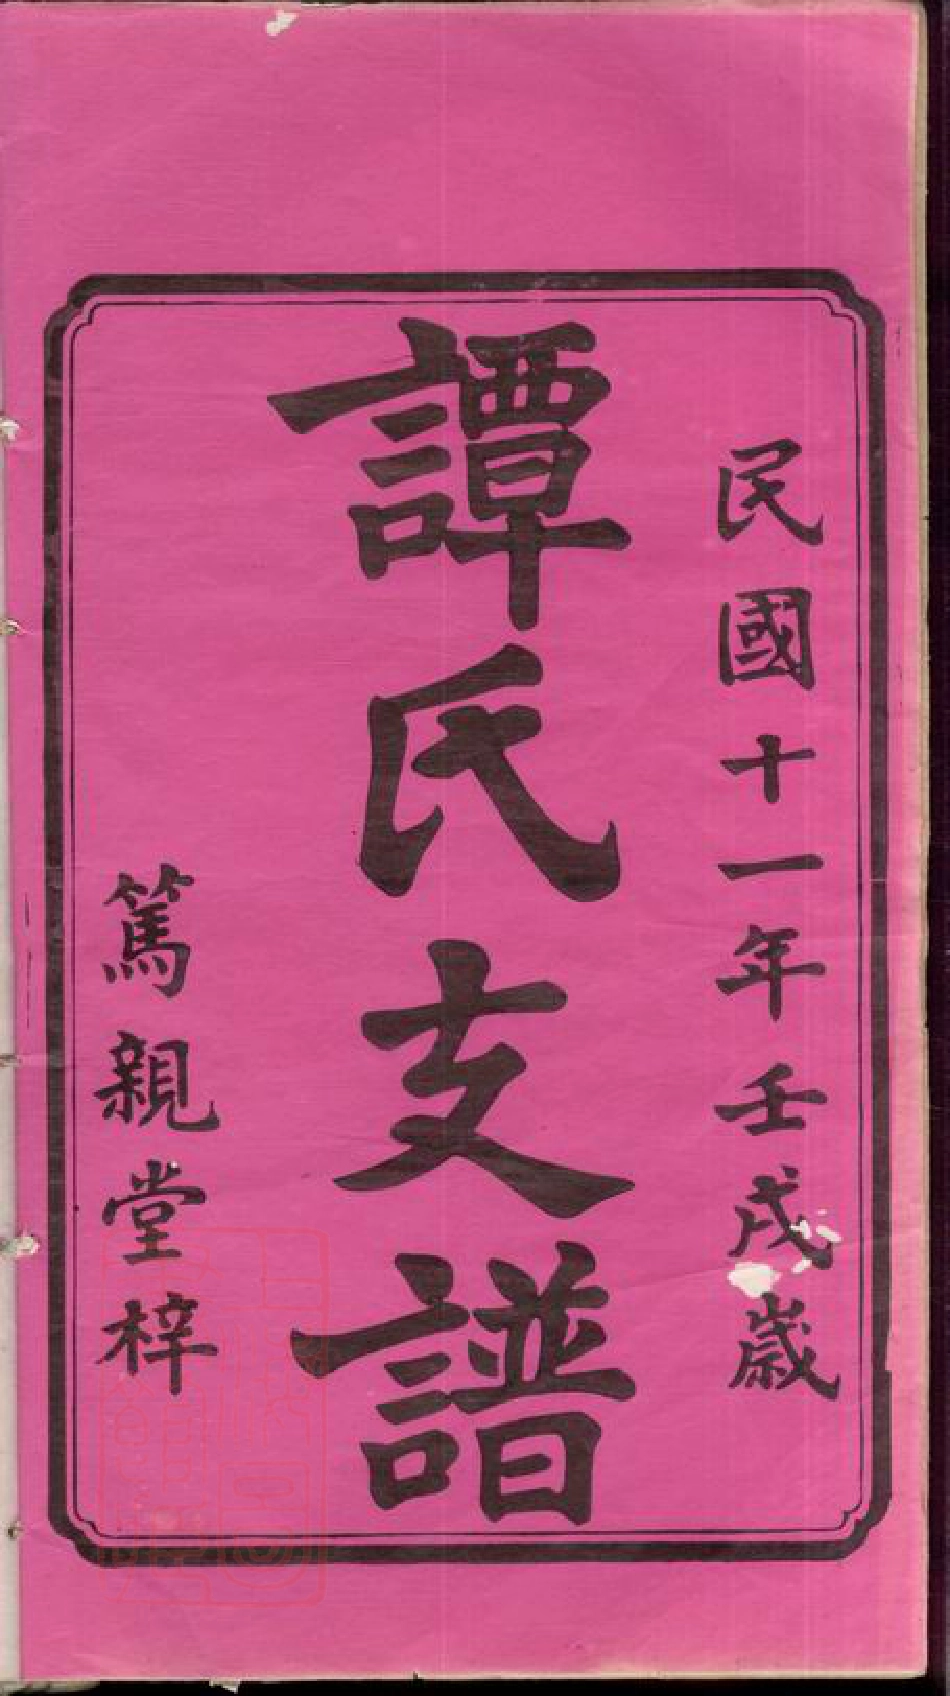 民國十一年壬戌歲
譚氏支譜
篤親堂梓